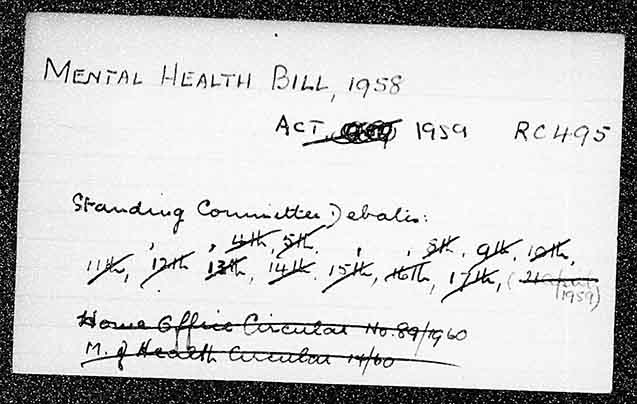 MENTAL HEALTH BILL, 1958
ACT, 1959 RC495
Standing Committee Debates:
, , 4th, 5th, , , 8th, 9th, 10th,
11th, 12th 13th, 14th, 15th, 16th, 17th, (
1959)
Home Office Circular No. 89/1960
M. of Health Circular 14/60